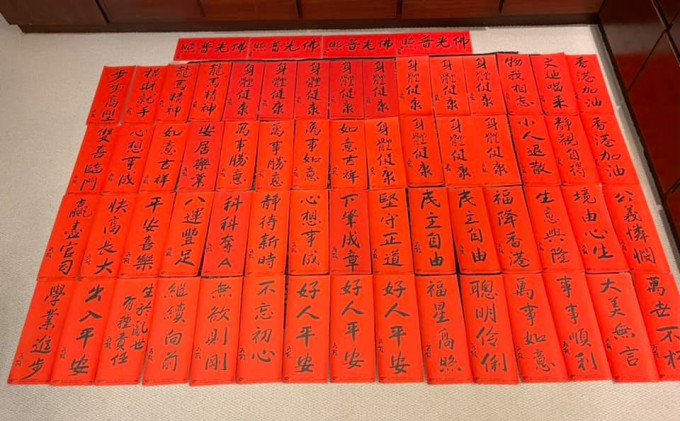 佛光普照
佛光普照
佛光普照
佛光普照
步步高陞
橫財就手
龍馬精神
龍馬精神
身體健康
身體健康
身體健康
身體健康
身體健康
身體健康
身體健康
身體健康
物我相忘
香港加油
雙喜臨門
心想事成
如意吉祥
安居樂業
萬事勝意
萬事勝意
萬事如意
如意吉祥
身體健康
身體健康
身體健康
身體健康
小人退散
靜觀自得
香港加油
贏盡官司
快高長大
平安喜樂
八運豐足
科科奪A
靜待新時
心想事成
下筆成章
堅守正道
民主自由
民主自由
福降香港
生意興隆
境由心生
公義憐憫
學業進步
出入平安
生於亂世
有種責任
繼續向前
無欲則剛
不忘初心
好人平安
好人平安
好人平安
福星高照
聰明伶俐
萬事如意
事事順利
大美無言
萬世不朽